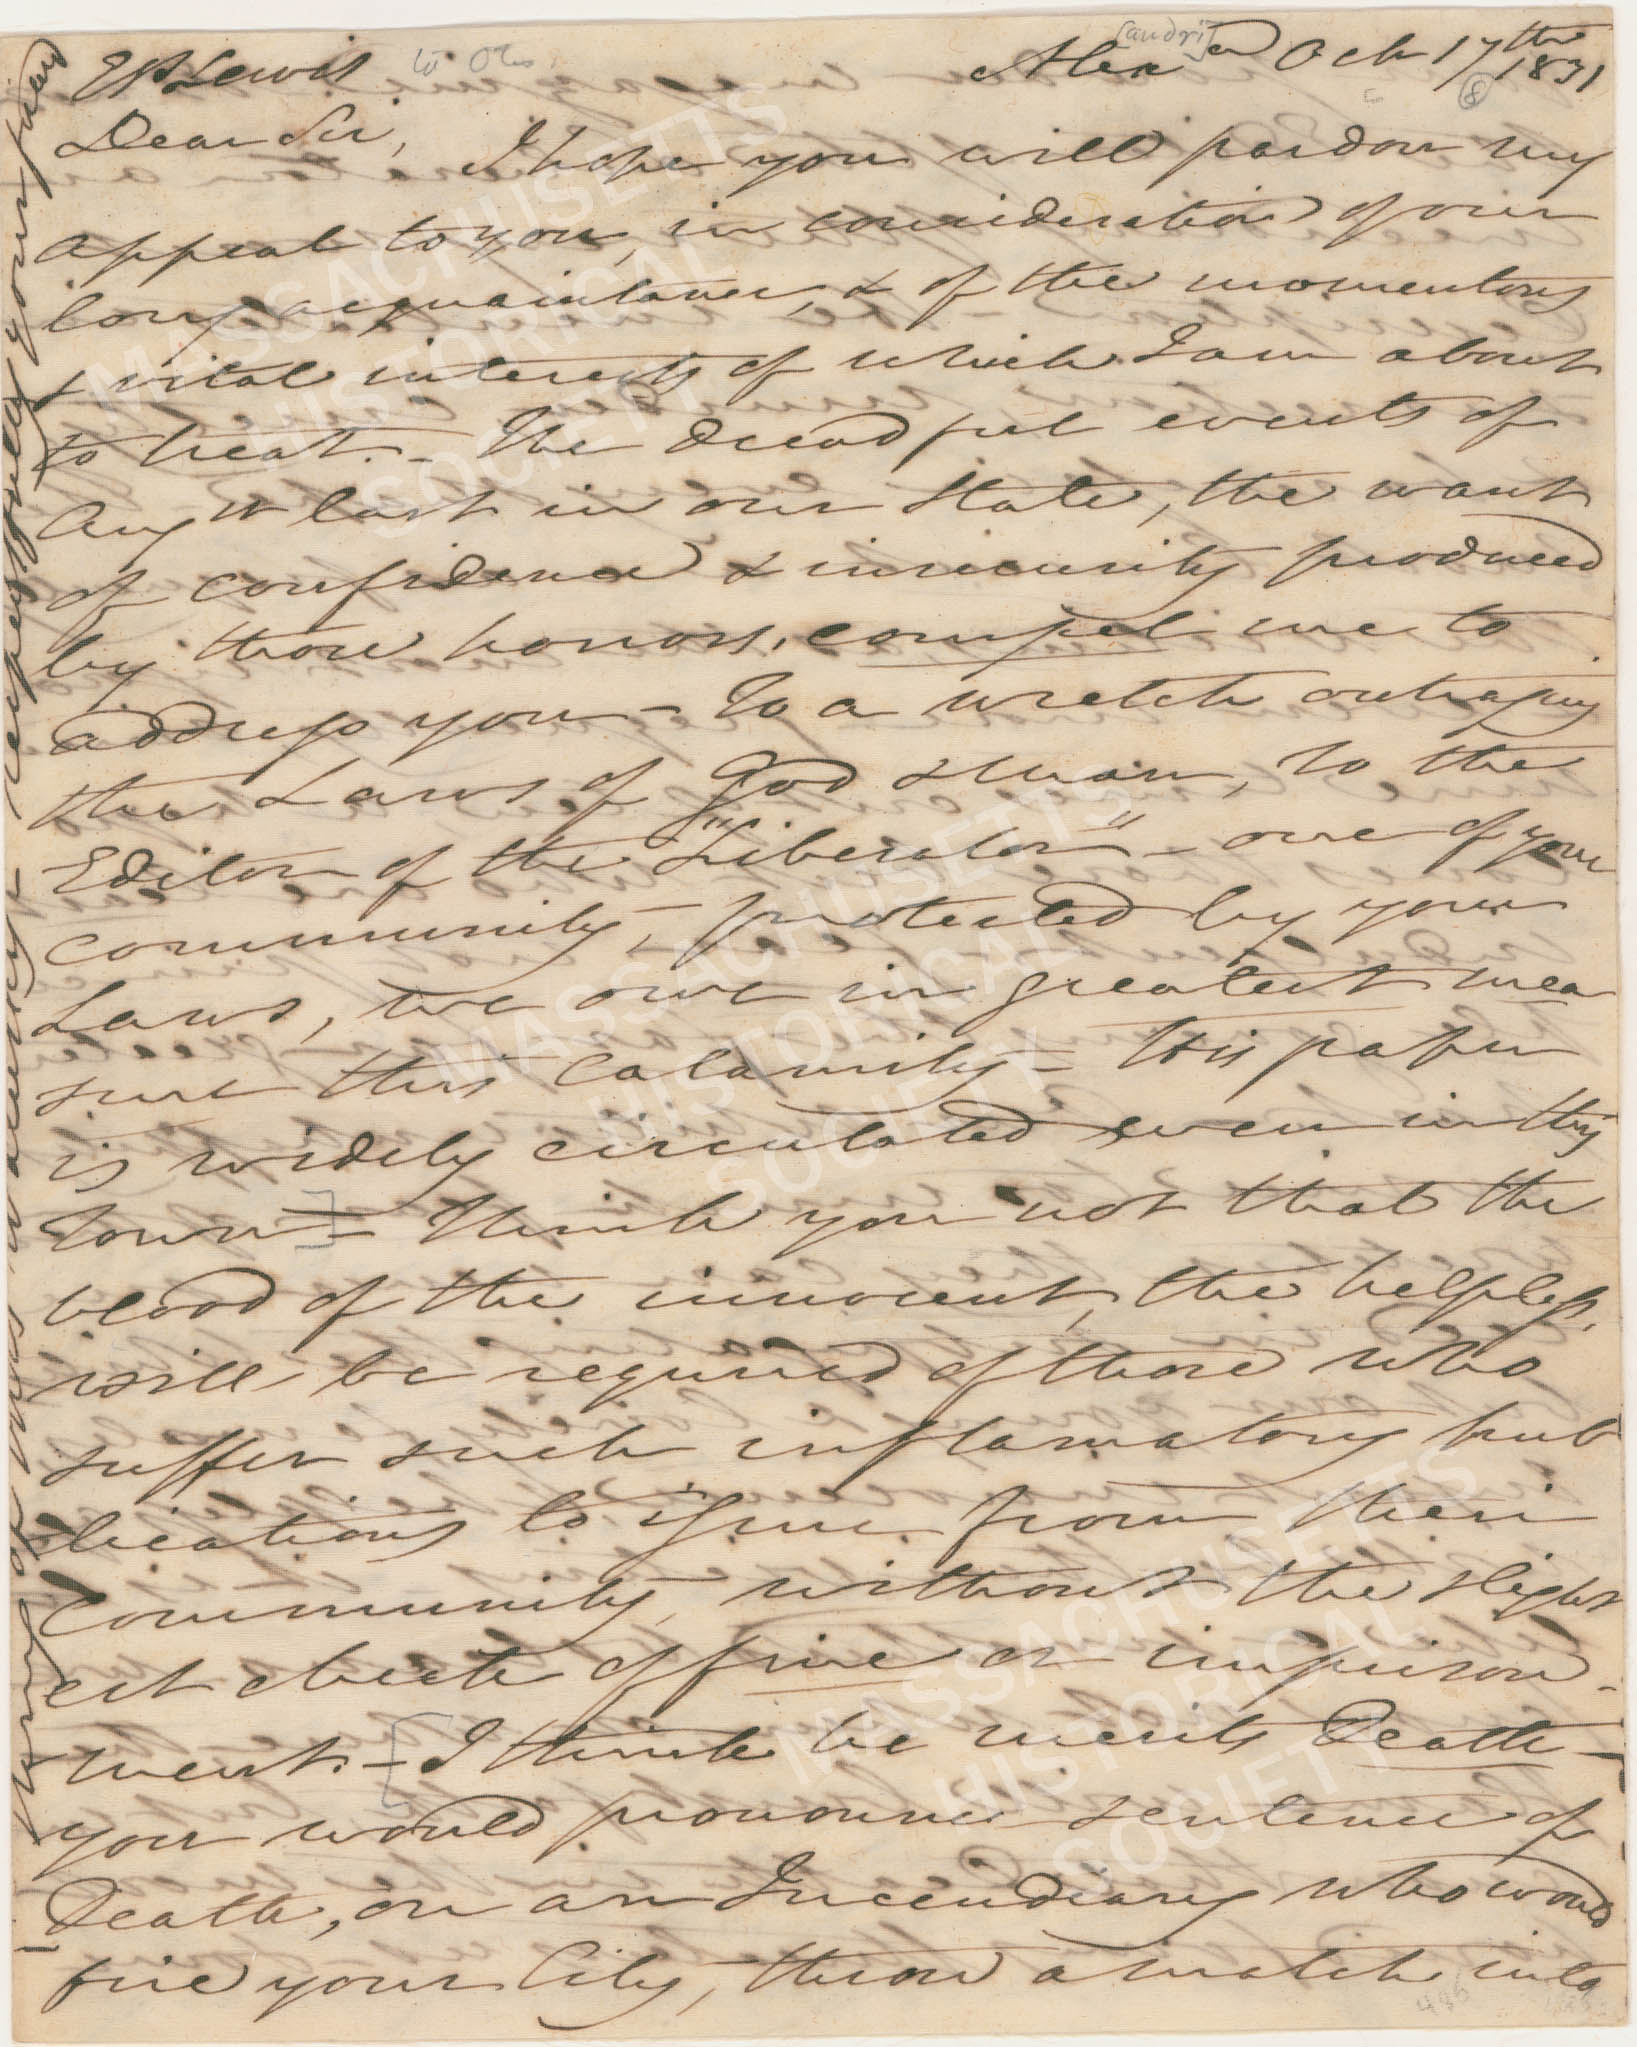 EP Lewis to Otis. Alexandria Oct 17th 1831
Dear Sir, I hope you will pardon my
appeal to you, in consideration of our
long acquaintance, & of the momentous
& vital interests of which I am about
to treat. – The dreadful events of
Augst last in our State, the want
of confidence & insecurity produced
by those horrors, compel me to
address you – To a wretch outraging
the Laws of God & Man, to the
Editor of the "Liberator" – one of your
community, – protected by your
Laws, we owe in greatest mea
sure this calamity – His paper
is widely circulated even in this
Town – Think you not that the
blood of the innocent, the helpless,
will be required of those who
suffer such inflamatory pub
lications to issue from their
community, without the slight
est check of fine or imprison-
ment. – I think he merits Death –
you would pronounce sentence of
Death, on an Incendiary who would
fire your City, throw a match into
respectfully your
MASSACHUSETTS
HISTORICAL
SOCIETY
MASSACHUSETTS
HISTORICAL
SOCIETY
MASSACHUSETTS
HISTORICAL
SOCIETY